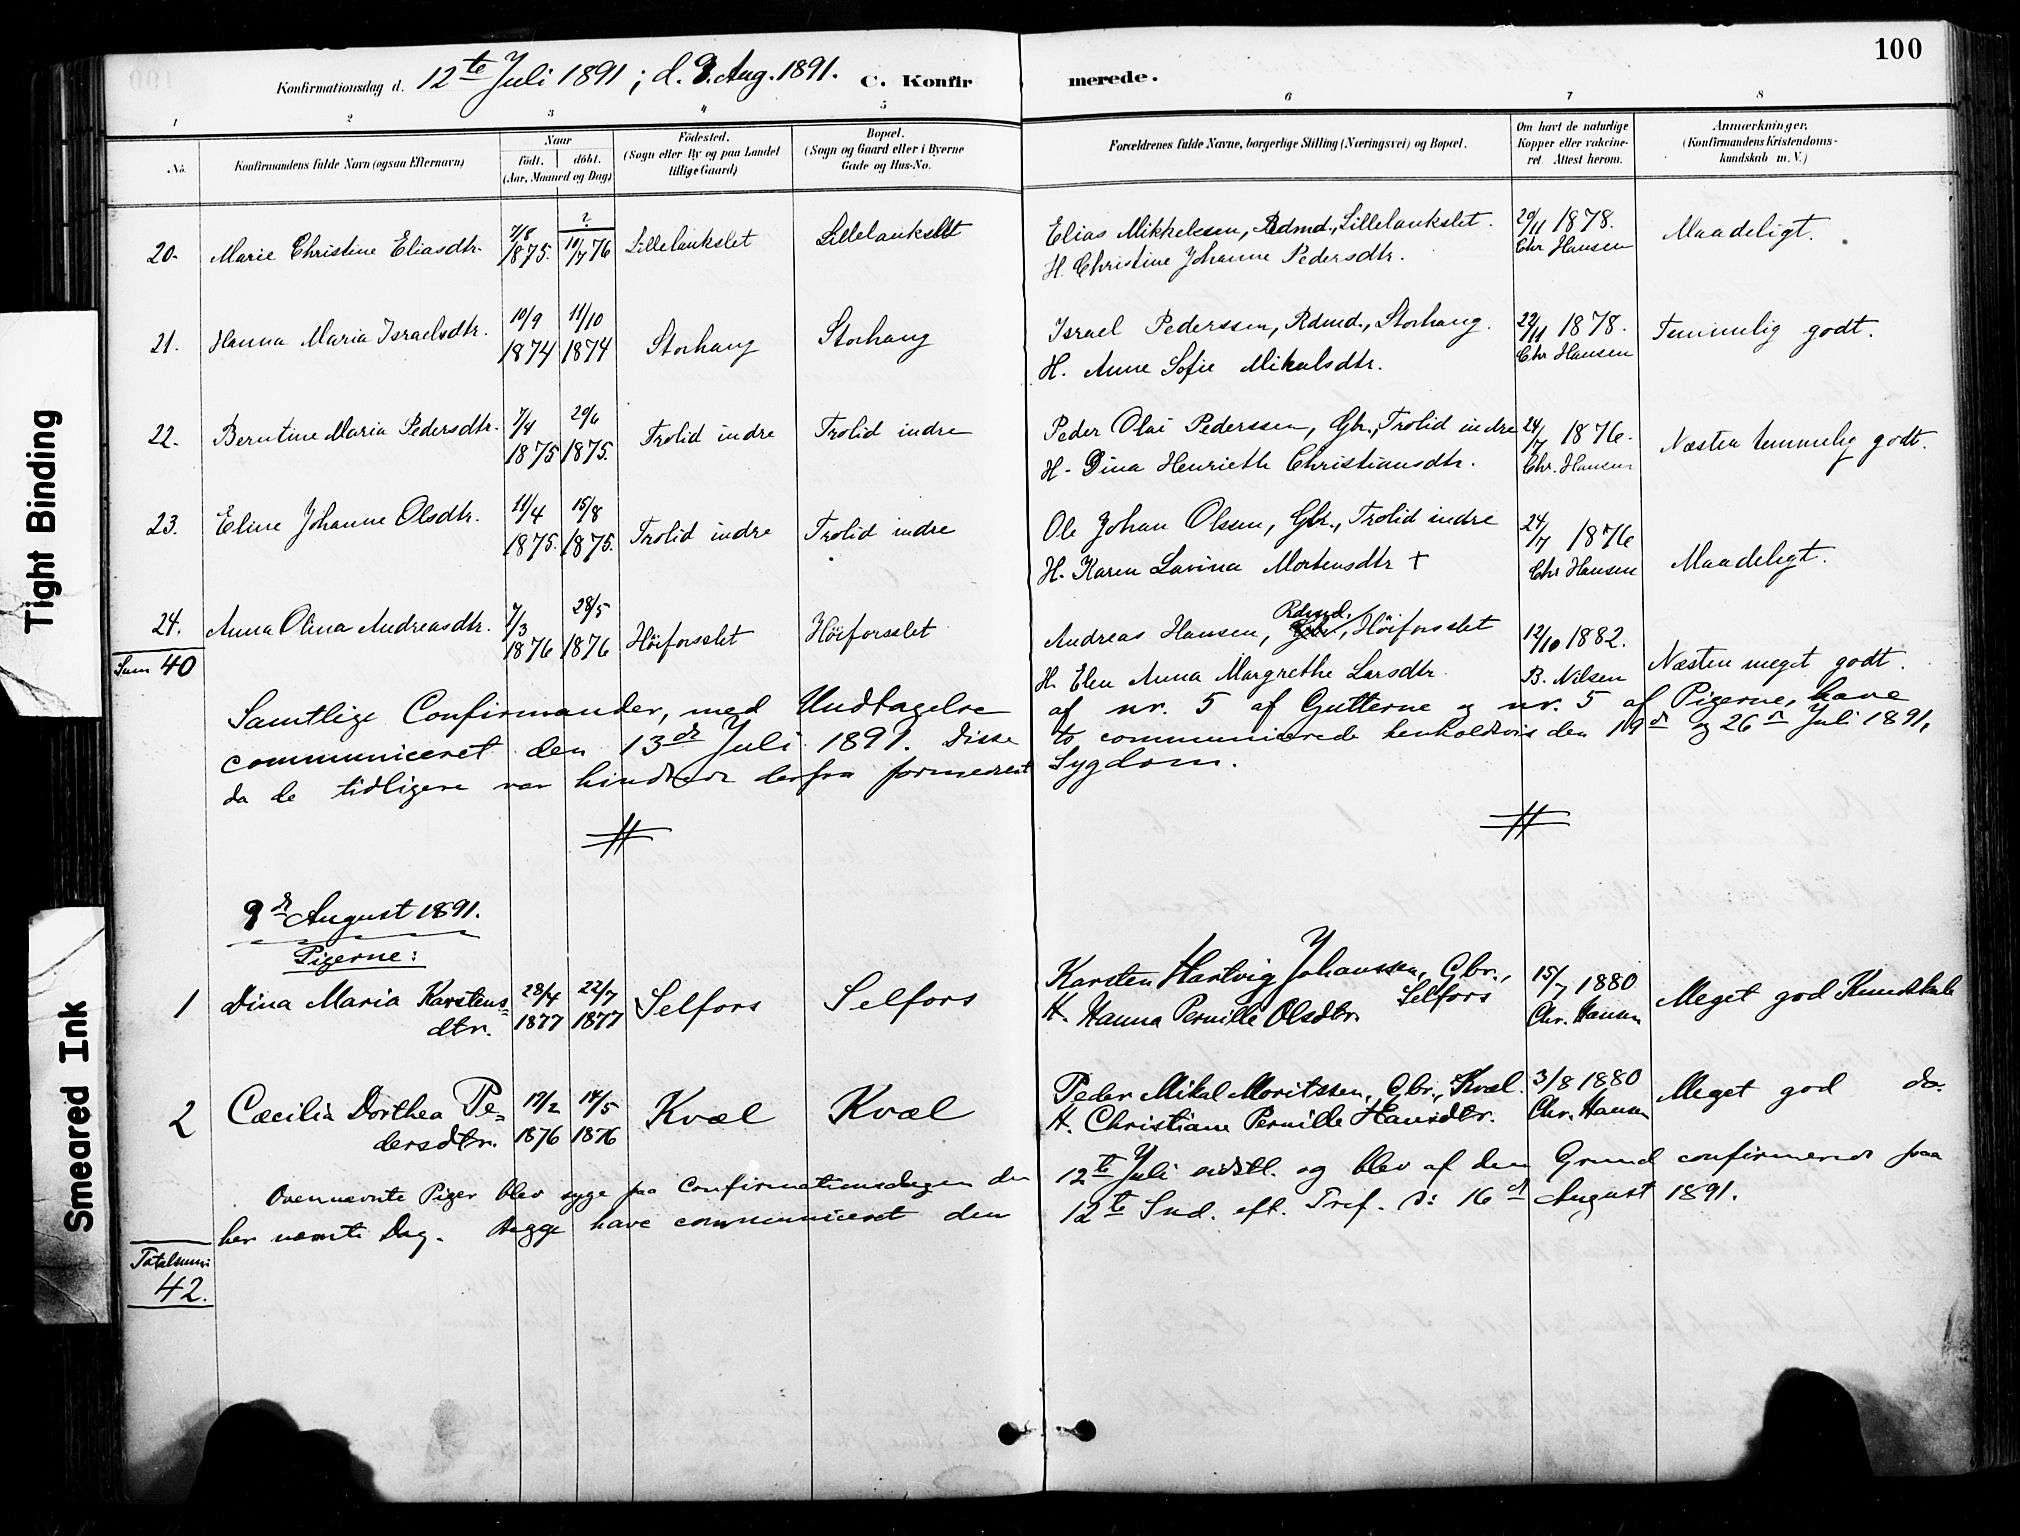 100
Konfirmationsdag d. 12te Juli 1891; d. 9. Aug. 1891. C. Konfirmerede.
1 2 3 4 5 6 7 8
No. Konfirmandens fulde Navn (ogsaa Efternavn) Naar født. døbt. (Aar, Maaned og Dag) Fødested. (Sogn eller By og paa Landet tillige Gaard) Bopæl. (Sogn og Gaard eller i Byerne Gade og Hus-No. Forældrenes fulde Navne, borgerlige Stilling (Næringsvei) og Bopæl. Om havt de naturlige Kopper eller vakcineret. Attest herom. Anmærkninger. (Konfirmandens Kristendomskundskab m. V.)
20. Marie Christine Eliasdtr. 7/8 1875. ? 10/7 76 Lillelaukslet Lillelaukslet Elias Mikkelsen, Rdmd., Lillelaukslet. 20/11 1878. Maadeligt.
H. Christine Johanne Pedersdtr. Chr Hansen
21. Hanna Maria Israelsdtr. 10/9 1874 11/10 1874 Storhaug Storhaug Israel Pederssen, Rdmd., Storhaug. 22/11 1878. Temmelig godt.
H. Anne Sofie Mikalsdtr. Chr Hansen
22. Berntine Maria Pedersdtr. 7/4 1875 20/6 1875. Trolid indre Trolid indre Peder Olai Pederssen, Gbr., Trolid indre 24/7 1876. Næsten temmelig godt.
H. Dina Henrieth Christiansdtr. Chr. Hansen
23. Eline Johanne Olsdtr. 11/4 1875. 15/8 1875. Trolid indre Trolid indre Ole Johan Olsen, Gbr., Trolid indre 24/7 1876 Maadeligt.
H. Karen Lavina Mortensdtr + Chr Hansen
24. Anna Olina Andreasdtr. 7/3 1876 28/5 1876 Høiforsslet Høiforsslet Andreas Hansen, Rdmd., Høiforsslet 12/10 1882. Næsten meget godt.
Sum 40 H. Elen Anna Margrethe Larsdtr. B. Nilsen
Samtlige Confirmander, med Undtagelse af nr. 5 af Gutterne og nr. 5 af Pigerne, have
communiceret den 13de Juli 1891. Disse to communicerede henholdsvis den 19de og 26de Juli 1891,
da de tidligere var hindrede derfra formedelst Sygdom.
9de August 1891.
Pigerne:
1 Dina Maria Karstensdtr. 28/4 1877 22/7 1877 Selfors Selfors Karsten Hartvig Johanssen, Gbr., Selfors 15/7 1880 Meget god Kundskab
H. Hanna Pernille Olsdtr. Chr. Hansen
2 Cæcilia Dorthea Pedersdtr. 19/2 1876 14/5 1876 Kvæl Kvæl Peder Mikal Moritssen, Gbr., Kvæl. 3/8 1880 Meget god do.
H. Christiane Pernille Hansdtr. Chr. Hansen
Ovennævnte Piger blev syge paa Confirmationsdagen den 12te Juli sidstl. og blev af den Grund confirmerede paa
her nævnte Dag. Begge have communiceret den 12te Snd. eft. Tref. d: 16de August 1891.
Totalsum: 42.
Tight Binding
Smeared Ink